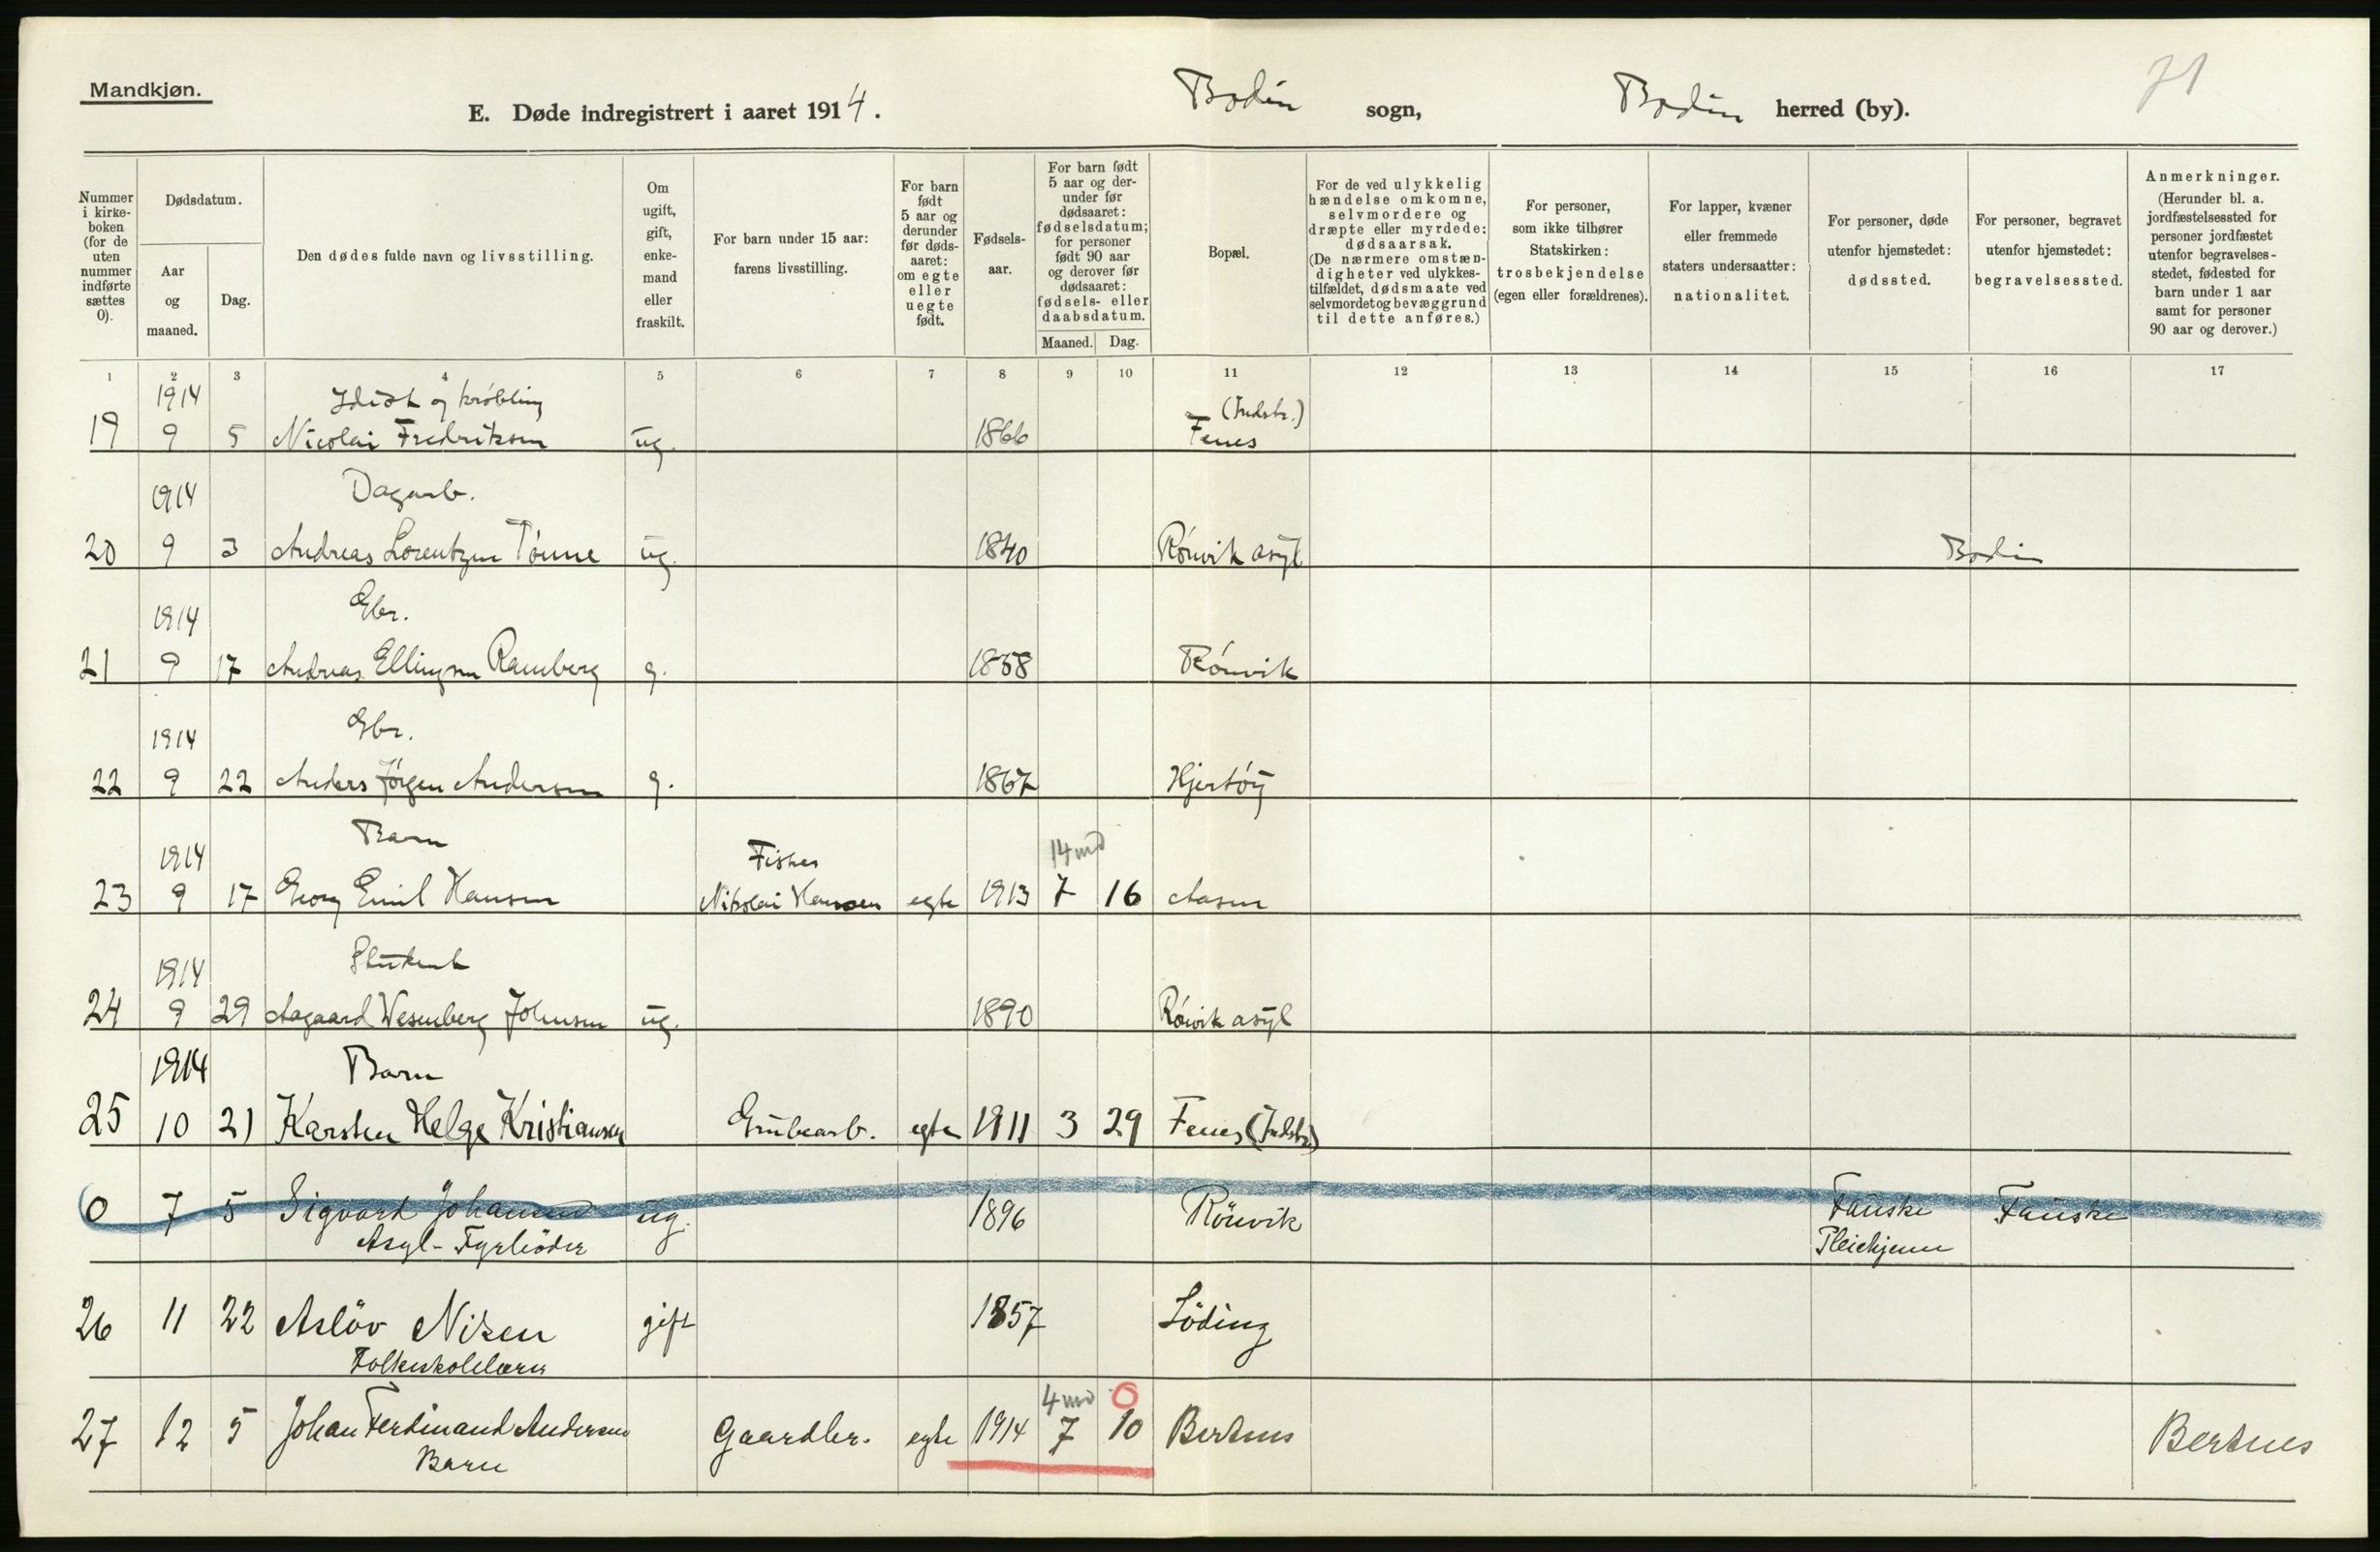 Mandkjøn.
71
E. Døde indregistrert i aaret 1914. Bodin sogn, Bodin herred (by).
Nummer i kirke-boken (for de uten nummer indførte sættes 0).
Dødsdatum.
Aar og maaned.
Dag.
Den dødes fulde navn og livsstilling.
Om ugift, gift, enke-mand eller fraskilt.
For barn under 15 aar: farens livsstilling.
For barn født 5 aar og derunder før døds-aaret: om egte eller uegte født.
Fødsels-aar.
For barn født 5 aar og der-under før dødsaaret: fødselsdatum; for personer født 90 aar og derover før dødsaaret: fødsels- eller daabsdatum.
Maaned. Dag.
Bopæl.
For de ved ulykkelig hændelse omkomne, selvmordere og dræpte eller myrdede: dødsaarsak. (De nærmere omstæn-digheter ved ulykkes-tilfældet, dødsmaate ved selvmordet og bevæggrund til dette anføres.)
For personer, som ikke tilhører Statskirken: trosbekjendelse (egen eller forældrenes).
For lapper, kvæner eller fremmede staters undersaatter: nationalitet.
For personer, døde utenfor hjemstedet: dødssted.
For personer, begravet utenfor hjemstedet: begravelsessted.
Anmerkninger. (Herunder bl. a. jordfæstelsessted for personer jordfæstet utenfor begravelses-stedet, fødested for barn under 1 aar samt for personer 90 aar og derover.)
1 2 3 4 5 6 7 8 9 10 11 12 13 14 15 16 17
1914 Idiot og krøbling (Indstr.)
19 9 5 Nicolai Fredriksen ug. 1866 Fenes
1914 Dagarb.
20 9 3 Andreas Lorentzen Tønne ug. 1840 Rönvik asyl Bodin
1914 Gbr.
21 9 17 Andreas Ellingsen Ramberg g. 1858 Rönvik
1914 Gbr.
22 9 22 Anders Jørgen Andersen g. 1867 Hjertöy
1914 Barn Fisker 14 md
23 9 17 Georg Emil Hansen Nikolai Hansen egte 1913 7 16 Aasen
1914 Student
24 9 29 Aagaard Wesenberg Johnsen ug. 1890 Rönvik asyl
1914 Barn
25 10 21 Karsten Helge Kristiansen Grubearb. egte 1911 3 29 Fenes (Indstr.)
0 7 5 Sigvard Johansen ug. 1896 Rönvik Fauske Fauske
Asyl- Fyrböder
26 11 22 Aslöv Nilsen gift 1857 Löding
Folkeskolelærer
4 md 0
27 12 5 Johan Ferdinand Andersen Gaardbr. egte 1914 7 10 Bertnes Bertnes
Barn